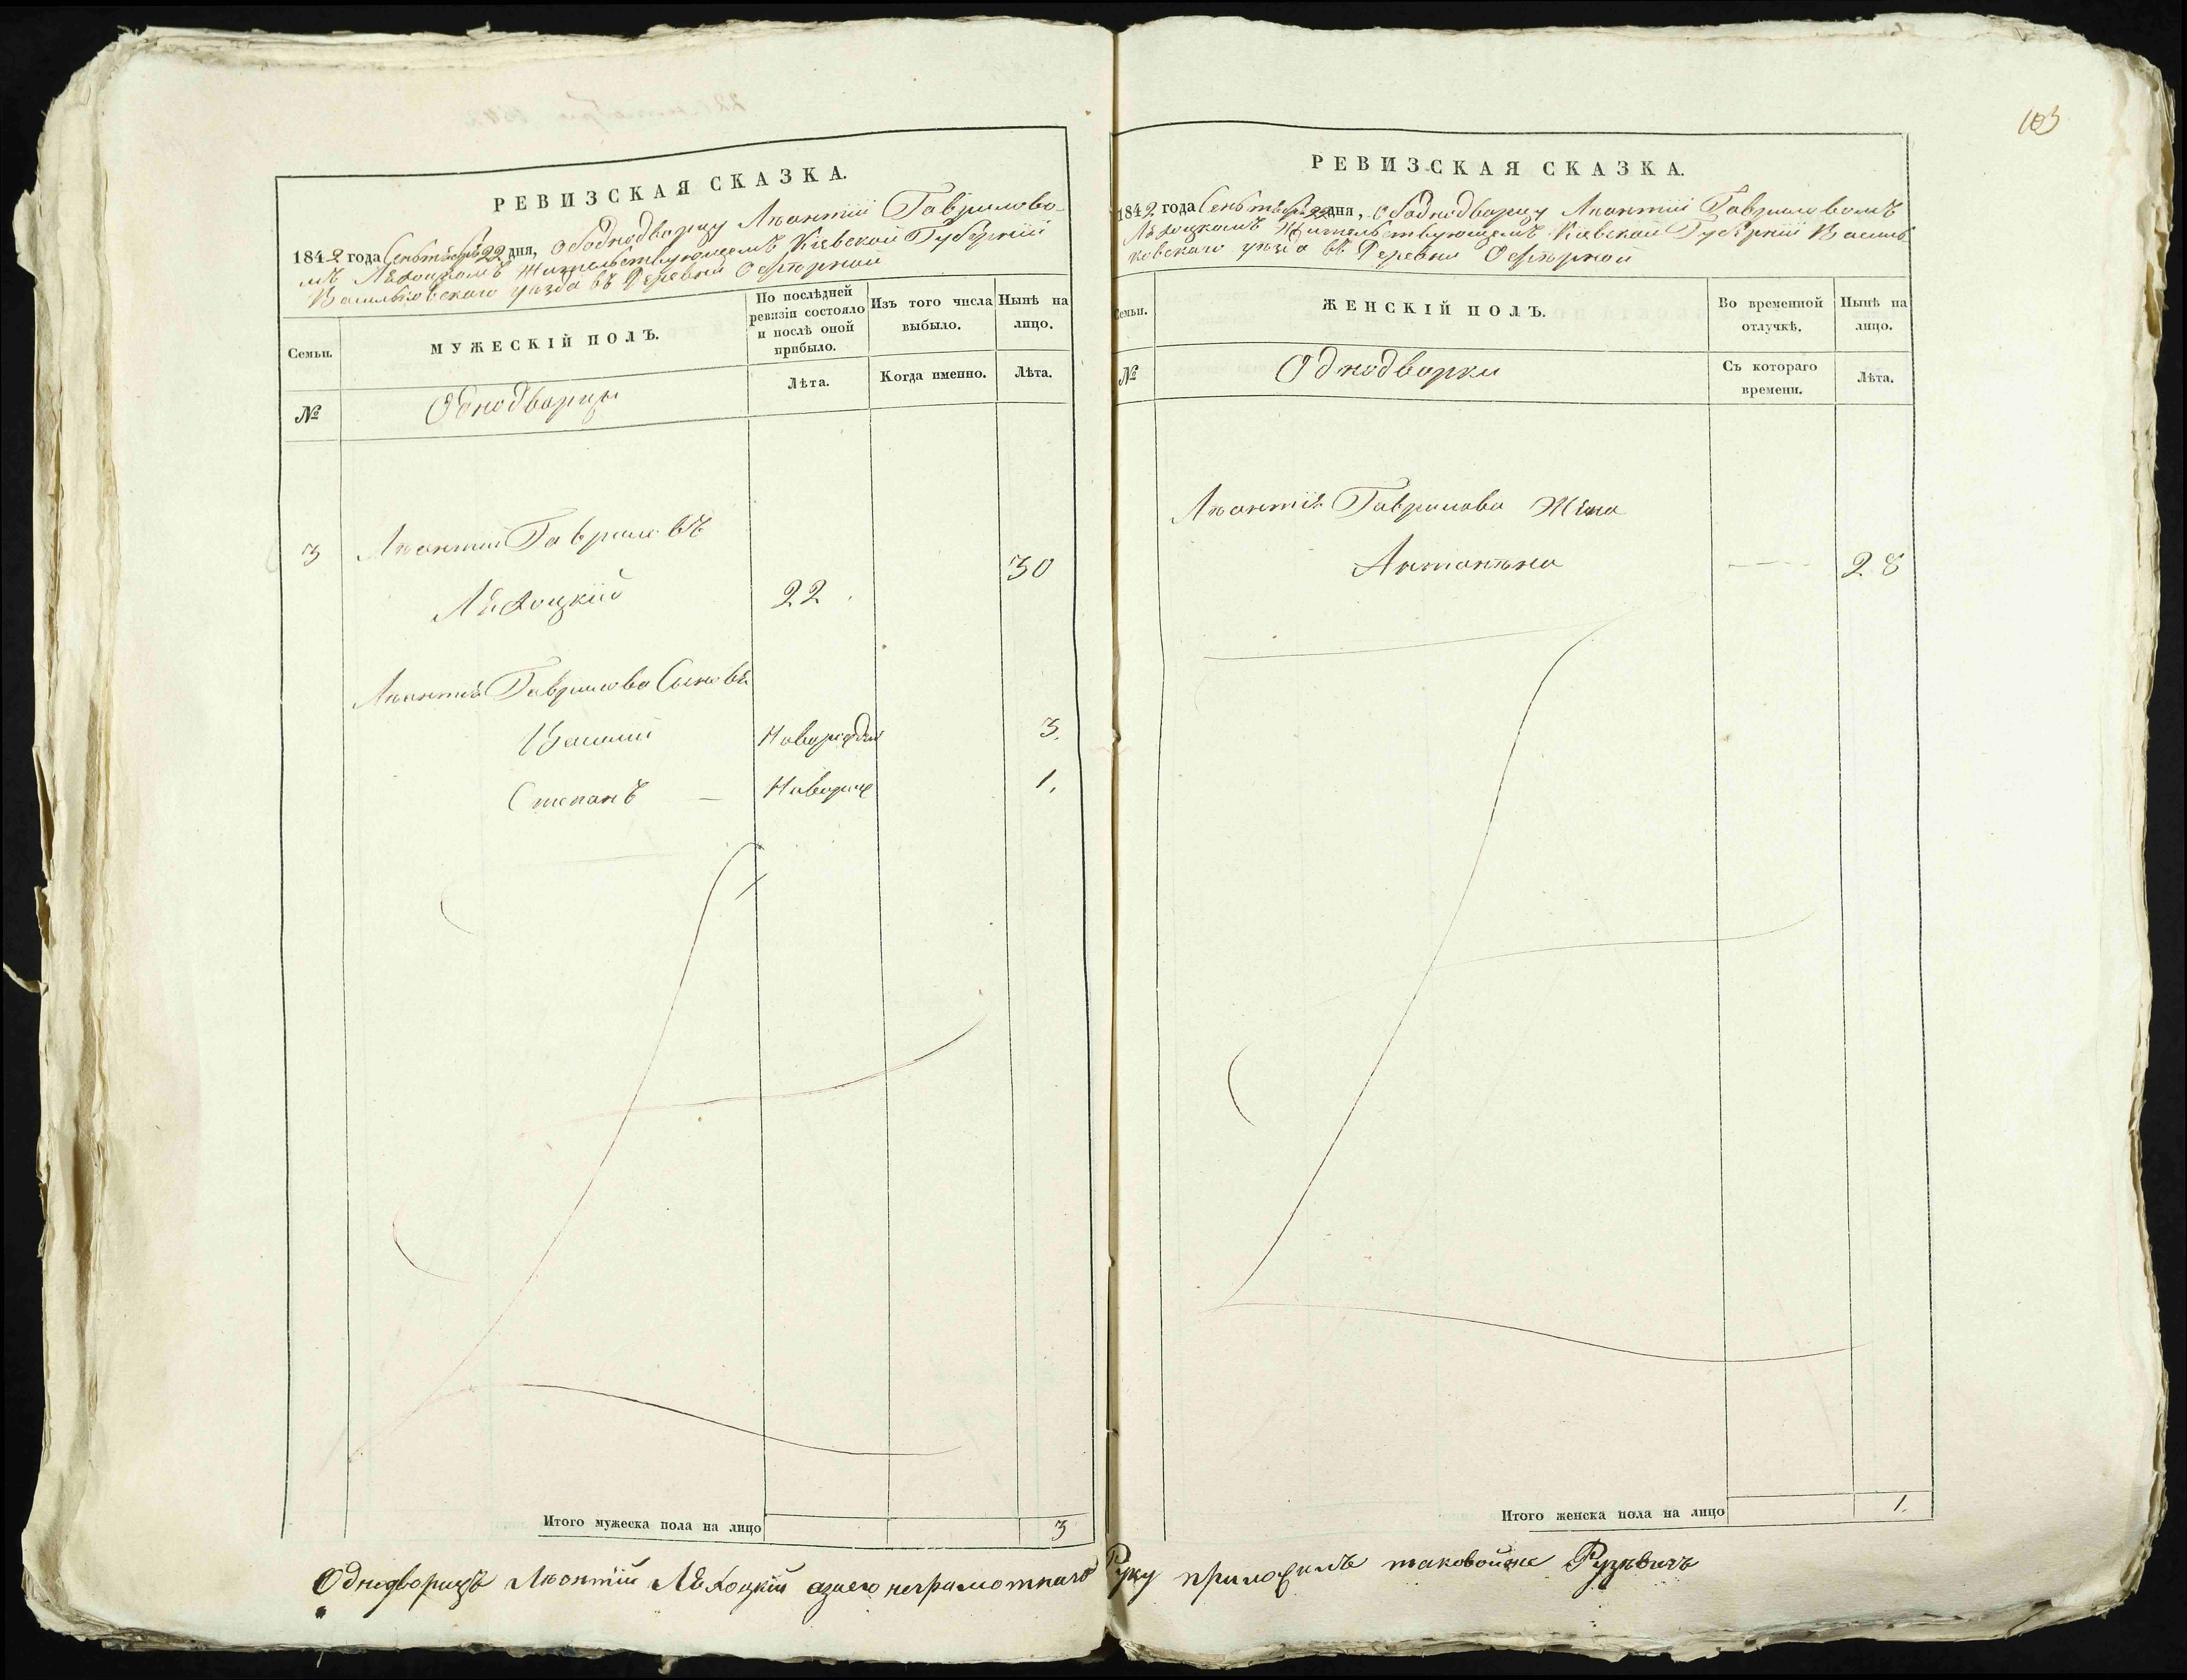 103
РЕВИЗСКАЯ СКАЗКА.
1842 года Сеньтября 22 дня, Ободнодворцу Лѣонтии Гаврилово-
мъ Лѣхоцкомъ жительствующемъ Кіевской Губернии
Васильковскаго уезда въ Деревни
Семьи.
МУЖЕСКІЙ ПОЛЪ.
По послѣдней ревизіи состояло и послѣ оной прибыло.
Изъ того числа выбыло.
Нынѣ на лицо.
№
Однодворцы
Лѣта.
Когда именно.
Лѣта.
3 Лѣонтий Гавриловъ
Лѣхоцкій 22 30
Лѣонтія Гаврилова Сыновя
Василий Новорожден 3.
Степанъ — Новорож 1.
Итого мужеска пола на лицо 3
РЕВИЗСКАЯ СКАЗКА.
1842 года Сеньтября 22 дня, Ободнодворцу Лѣонтии Гавриловомъ
Лѣхоцкомъ Жительствующемъ Кіевской Губернии Василь
ковскаго уезда въ Деревни
Семьи.
ЖЕНСКІЙ ПОЛЪ.
Во временной отлучкѣ.
Нынѣ на лицо.
№
Однодворки
Съ котораго времени.
Лѣта.
Лѣонтія Гаврилова Жена
Антонѣна 28
Итого женска пола на лицо 1.
Однодворецъ Лѣонтій Лѣхоцкій азаего неграмотнаго Руку приложилъ таковойже